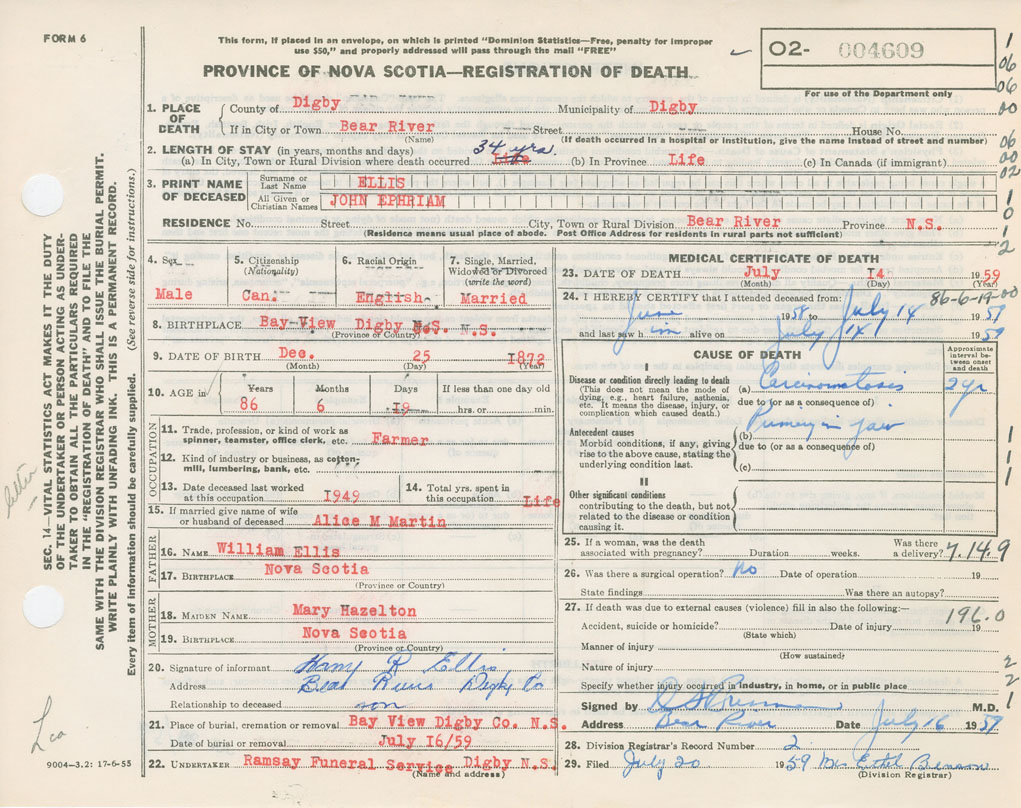 FORM 6
This form, if placed in an envelope, on which is printed "Dominion Statistics—Free, penalty for improper
use $50," and properly addressed will pass through the mail "FREE"
PROVINCE OF NOVA SCOTIA—REGISTRATION OF DEATH
O2- 004609
For use of the Department only
1. PLACE OF DEATH County of Digby Municipality of Digby
If in City or Town Bear River Street House No.
(Name) (If death occurred in a hospital or institution, give the name instead of street and number)
2. LENGTH OF STAY (in years, months and days) 34 yrs.
(a) In City, Town or Rural Division where death occurred Life (b) In Province Life (c) In Canada (if immigrant)
3. PRINT NAME OF DECEASED Surname or Last Name ELLIS
All Given or Christian Names JOHN EPHRIAM
RESIDENCE No. Street City, Town or Rural Division Bear River Province N.S.
(Residence means usual place of abode. Post Office Address for residents in rural parts not sufficient)
4. Sex Male
5. Citizenship (Nationality) Can.
6. Racial Origin English
7. Single, Married, Widowed or Divorced (write the word) Married
8. BIRTHPLACE Bay View Digby N.S. N.S.
(Province or Country)
9. DATE OF BIRTH Dec. 25 1872
(Month) (Day) (Year)
10. AGE in Years Months Days If less than one day old
86 6 19 hrs. or min.
OCCUPATION
11. Trade, profession, or kind of work as spinner, teamster, office clerk, etc. Farmer
12. Kind of industry or business, as cotton, mill, lumbering, bank, etc.
13. Date deceased last worked at this occupation 1949
14. Total yrs. spent in this occupation Life
15. If married give name of wife or husband of deceased Alice M Martin
FATHER
16. NAME William Ellis
17. BIRTHPLACE Nova Scotia
(Province or Country)
MOTHER
18. MAIDEN NAME Mary Hazelton
19. BIRTHPLACE Nova Scotia
(Province or Country)
20. Signature of informant Harry R Ellis
Address Bear River Digby Co
Relationship to deceased son
21. Place of burial, cremation or removal Bay View Digby Co. N.S.
Date of burial or removal July 16/59
22. UNDERTAKER Ramsay Funeral Service Digby N.S.
(Name and address)
MEDICAL CERTIFICATE OF DEATH
23. DATE OF DEATH July 14 1959
(Month) (Day) (Year)
24. I HEREBY CERTIFY that I attended deceased from: 86-6-19-00
June 1958 to July 14 1959
and last saw him alive on July 14 1959
CAUSE OF DEATH
Approximate interval between onset and death
I
Disease or condition directly leading to death
(This does not mean the mode of dying, e.g., heart failure, asthenia, etc. It means the disease, injury, or complication which caused death.)
(a) Carcinomatosis 2 yr
due to (or as a consequence of)
Primary in jaw
Antecedent causes
Morbid conditions, if any, giving rise to the above cause, stating the underlying condition last.
(b)
due to (or as a consequence of)
(c)
II
Other significant conditions
contributing to the death, but not related to the disease or condition causing it.
25. If a woman, was the death associated with pregnancy? Duration weeks. Was there a delivery? 7.14.9
26. Was there a surgical operation? no Date of operation 19
State findings Was there an autopsy?
27. If death was due to external causes (violence) fill in also the following:—
196.0
Accident, suicide or homicide? Date of injury 19
(State which)
Manner of injury
(How sustained)
Nature of injury
Specify whether injury occurred in industry, in home, or in public place
Signed by M.D.
Address Bear River Date July 16 1959
28. Division Registrar's Record Number 2
29. Filed July 20 1959 Mrs Ethel Benson
(Division Registrar)
SEC. 14—VITAL STATISTICS ACT MAKES IT THE DUTY
OF THE UNDERTAKER OR PERSON ACTING AS UNDER-
TAKER TO OBTAIN ALL THE PARTICULARS REQUIRED
IN THE "REGISTRATION OF DEATH" AND TO FILE THE
SAME WITH THE DIVISION REGISTRAR WHO SHALL ISSUE THE BURIAL PERMIT.
WRITE PLAINLY WITH UNFADING INK. THIS IS A PERMANENT RECORD.
Every item of information should be carefully supplied. (See reverse side for instructions.)
letter
9004-3.2: 17-6-55
1
06
06
00
06
00
02
1
0
1
2
1
1
1
2
2
1